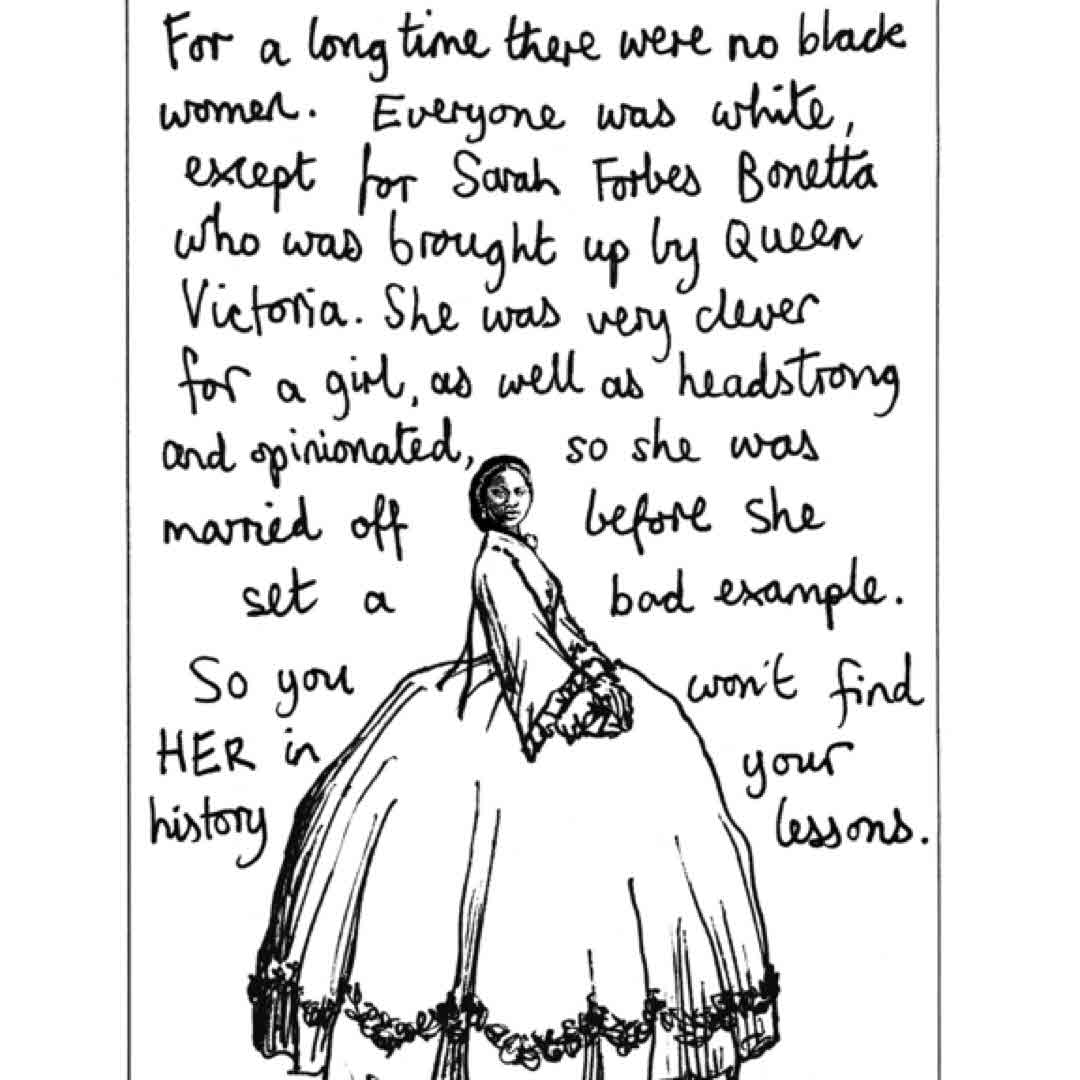 For a long time there were no black
women. Everyone was white,
except for Sarah Forbes Bonetta
who was brought up by Queen
Victoria. She was very clever
for a girl, as well as headstrong
and opinionated, so she was
married off before she
set a bad example.
So you won't find
HER in your
history lessons.